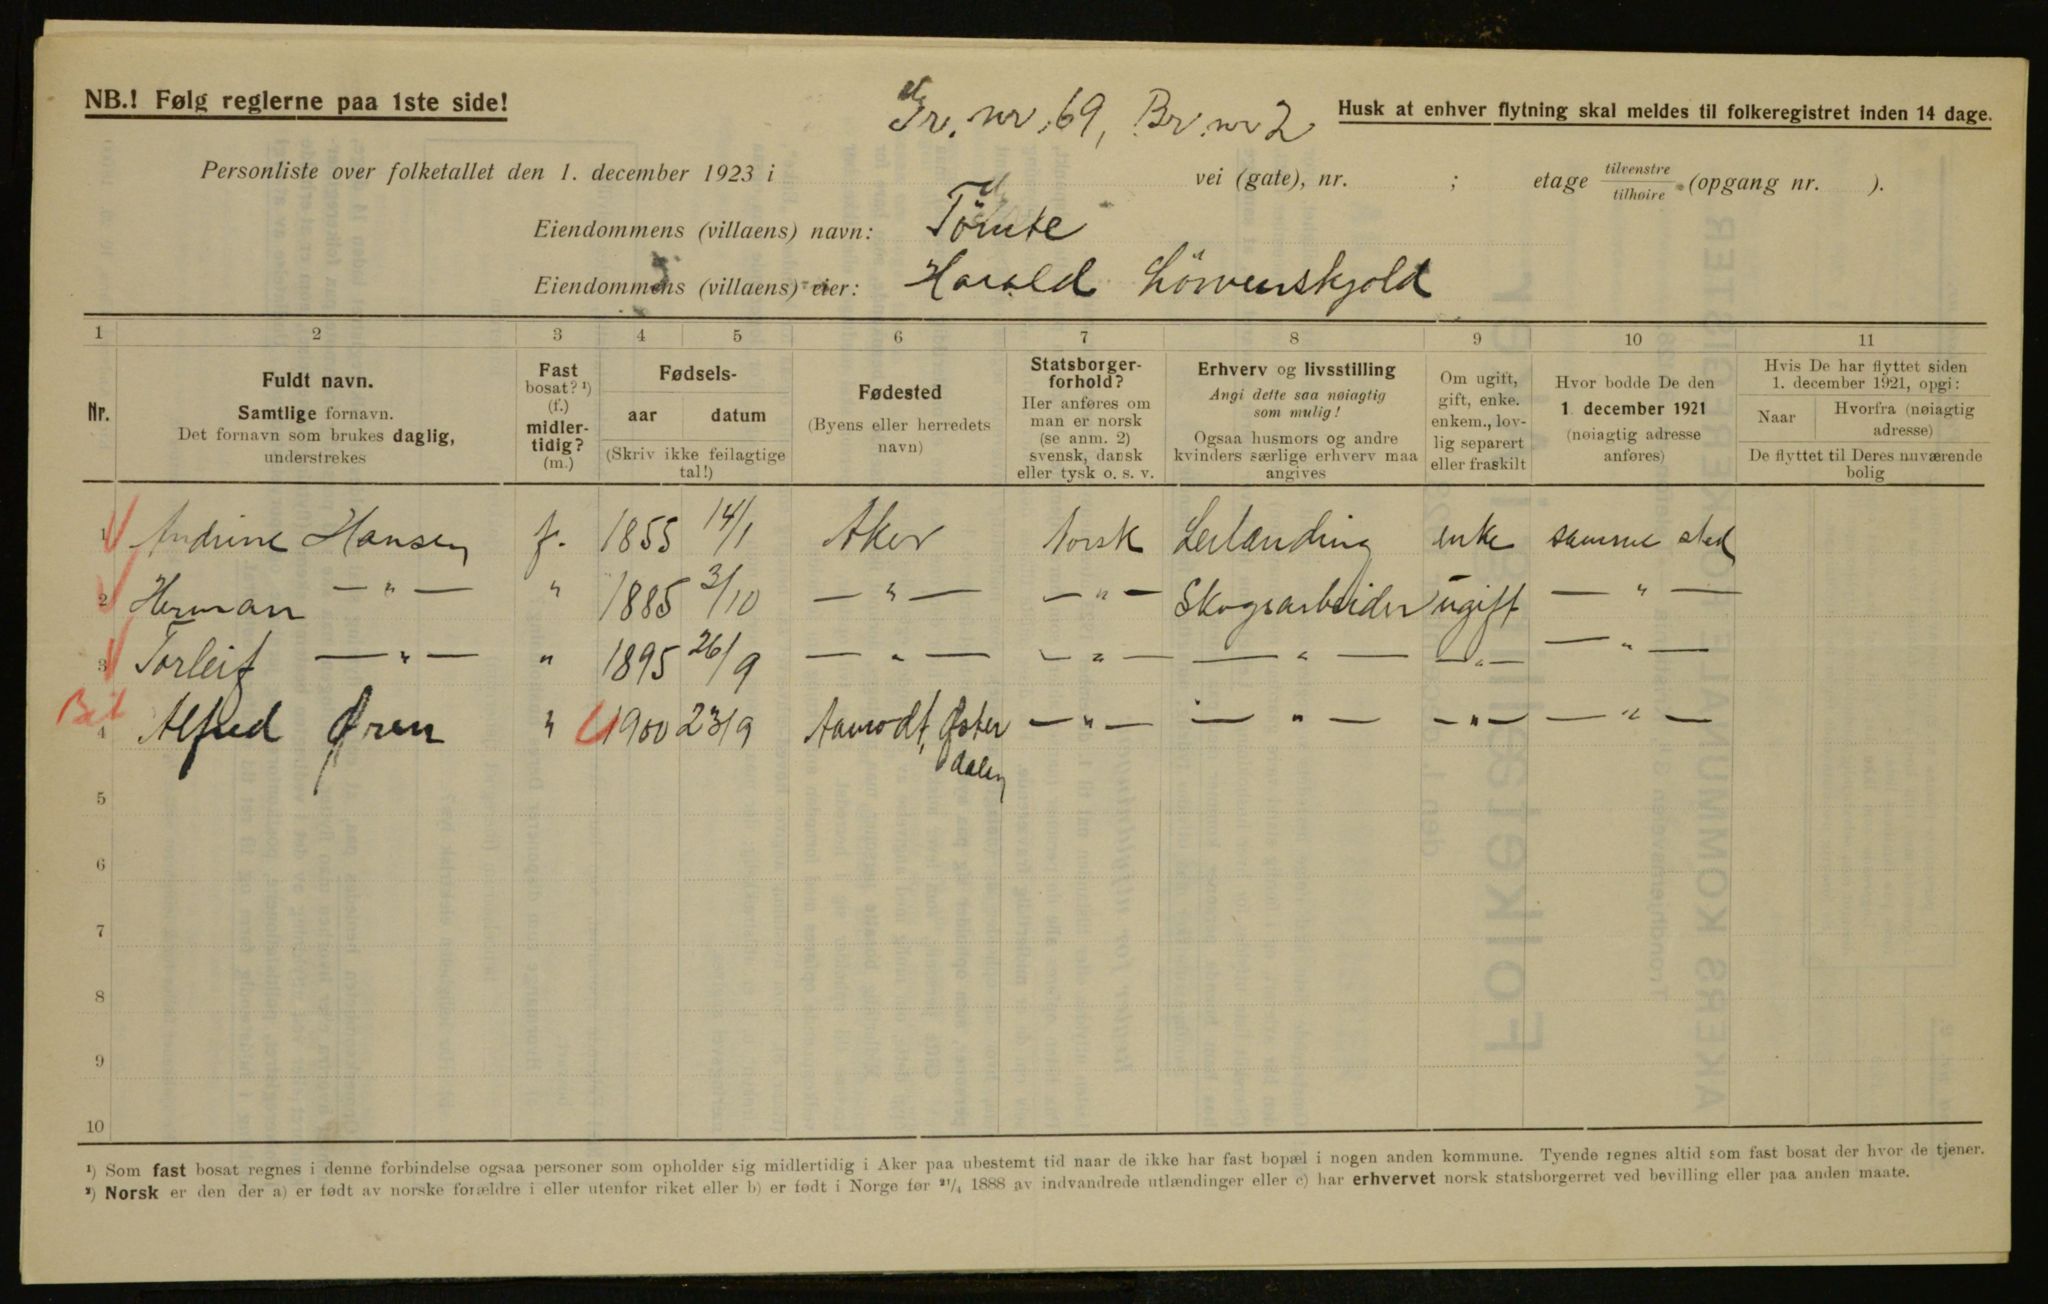 NB.! Følg reglerne paa 1ste side!
Gr. nr. 69, Br. nr 2
Husk at enhver flytning skal meldes til folkeregistret inden 14 dage.
Personliste over folketallet den 1. december 1923 i vei (gate), nr. ; etage tilvenstre / tilhøire (opgang nr. ).
Eiendommens (villaens) navn: Tömte
Eiendommens (villaens) eier: Harald Löwenskjold
1 2 3 4 5 6 7 8 9 10 11
Nr.
Fuldt navn.
Samtlige fornavn.
Det fornavn som brukes daglig,
understrekes
Fast
bosat? ¹)
(f.)
midler-
tidig?
(m.)
Fødsels-
aar datum
(Skriv ikke feilagtige
tal!)
Fødested
(Byens eller herredets
navn)
Statsborger-
forhold?
Her anføres om
man er norsk
(se anm. 2)
svensk, dansk
eller tysk o. s. v.
Erhverv og livsstilling
Angi dette saa nøiagtig
som mulig!
Ogsaa husmors og andre
kvinders særlige erhverv maa
angives
Om ugift,
gift, enke.
enkem., lov-
lig separert
eller fraskilt
Hvor bodde De den
1. december 1921
(nøiagtig adresse
anføres)
Hvis De har flyttet siden
1. december 1921, opgi:
Naar Hvorfra (nøiagtig
adresse)
De flyttet til Deres nuværende
bolig
1 Andrine Hansen f. 1855 14/1 Aker Norsk Leilænding enke samme sted
2 Herman —„— „ 1885 3/10 —„— —„— Skogsarbeider ugift —„—
3 Torleif —„— „ 1895 26/9 —„— —„— —„— —„— —„—
4 Alfred Øren „ 1900 23/9 Aamodt, Øster —„— —„— —„— —„—
dalen
5
6
7
8
9
10
¹) Som fast bosat regnes i denne forbindelse ogsaa personer som opholder sig midlertidig i Aker paa ubestemt tid naar de ikke har fast bopæl i nogen anden kommune. Tyende regnes altid som fast bosat der hvor de tjener.
²) Norsk er den der a) er født av norske forældre i eller utenfor riket eller b) er født i Norge før ²¹/₄ 1888 av indvandrede utlændinger eller c) har erhvervet norsk statsborgerret ved bevilling eller paa anden maate.